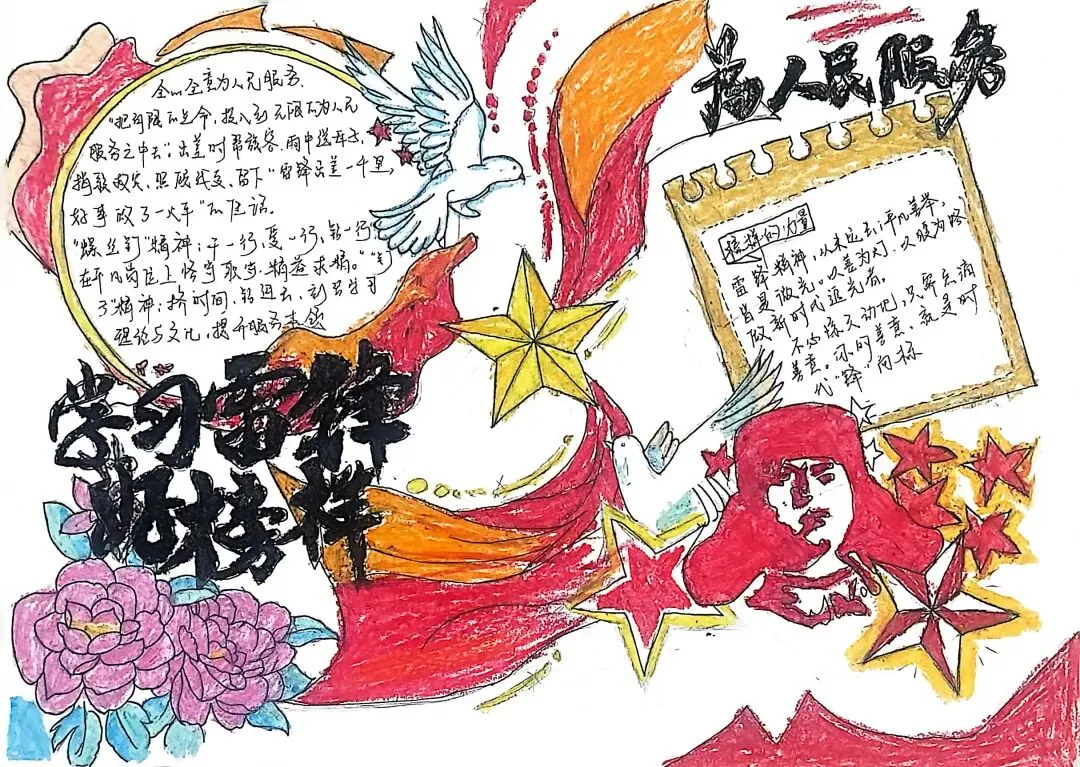 全心全意为人民服务.
"把有限的生命,投入到无限的为人民
服务之中去";出差时帮旅客,雨中送母子,
捐款救灾,照顾战友,留下"雷锋出差一千里,
好事做了一火车"的佳话.
"螺丝钉"精神:干一行,爱一行,钻一行,
在平凡岗位上恪尽职守.精益求精。"钉
子"精神:挤时间,钻进去,刻苦学习
理论与文化,提升服务本领
学习雷锋
好榜样
为人民服务
榜样的力量
雷锋精神,从未远去;平凡善举,
皆是微光。以善为灯,以锋为路
做新时代追光者。
不必惊天动地,只需点滴
善意。你的善意,就是时
代"锋"向标